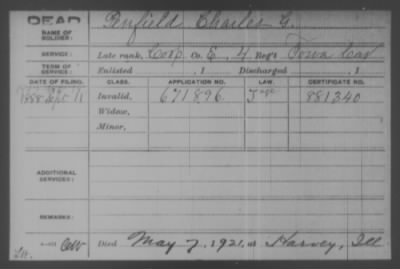 DEAD
NAME OF SOLDIER: Enfield Charles G.
SERVICE: Late rank, Corp Co. E, 4 Reg't Iowa Cav
TERM OF SERVICE: Enlisted , 1 Discharged , 1
DATE OF FILING. CLASS. APPLICATION NO. CERTIFICATE NO.
1888 Sept Invalid, 671896 881340
Widow,
Minor,
ADDITIONAL SERVICES:
REMARKS:
Died May 7, 1921, at Harvey, Ill